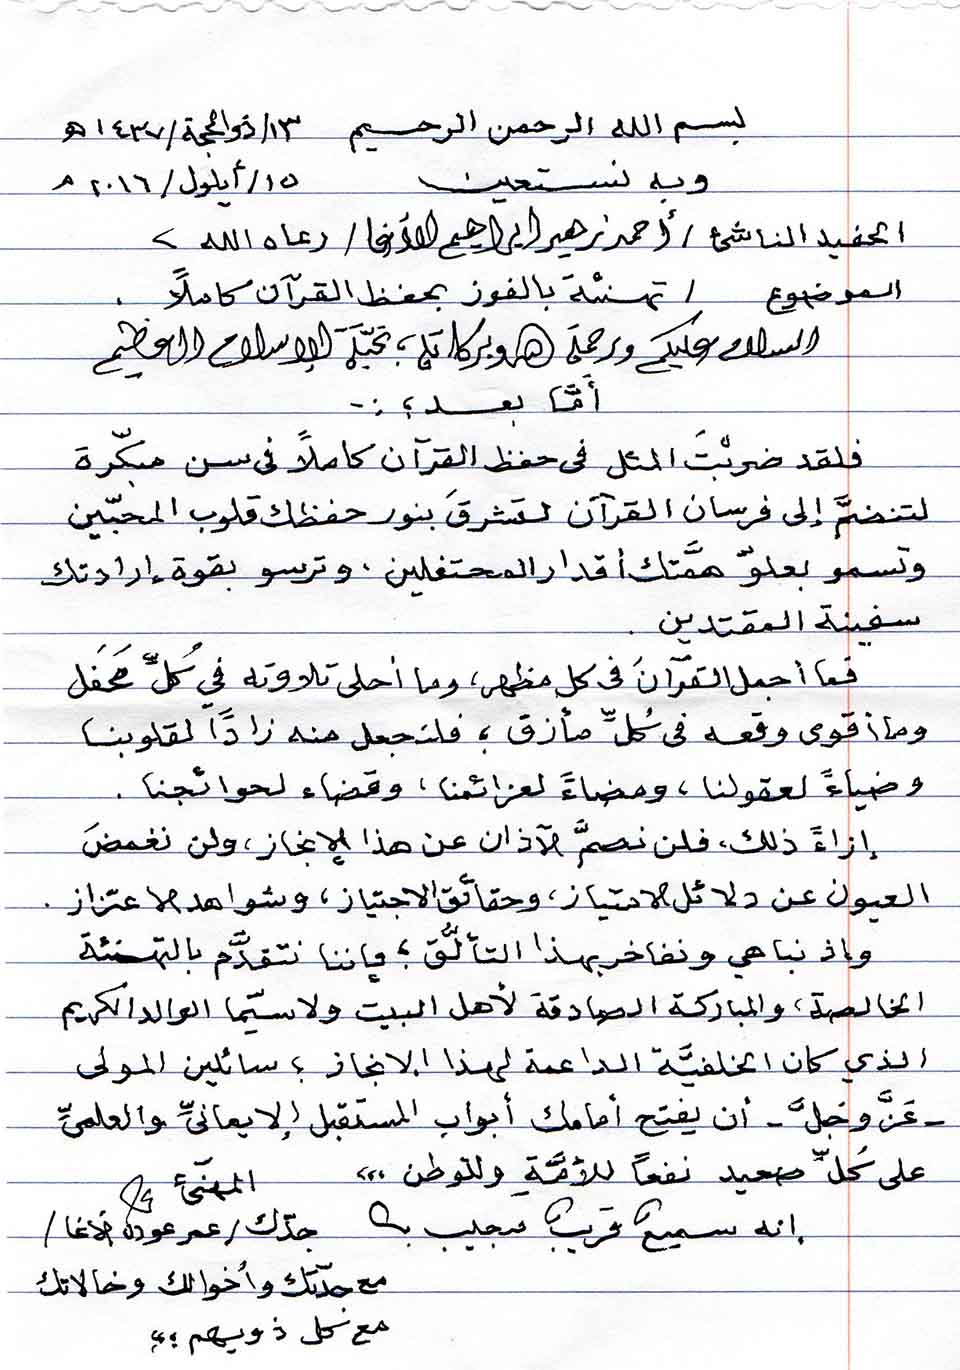 بسم الله الرحمن الرحيم ١٣/ذوالحجة/١٤٣٧هـ
وبه نستعين ١٥/أيلول/٢٠١٦م
الحفيد الناشئ/أحمد زهير ابراهيم الأغا/ رعاه الله >
الموضوع / تهنئة بالفوز بحفظ القرآن كاملاً .
السلام عليكم ورحمة الله وبركاته ؛ تحيّة الإسلام العظيم
أمّا بعد ؛ :-
فلقد ضربْتَ المثل فى حفظ القرآن كاملاً فى سن مبكّرة
لتنضمَّ إلى فرسان القرآن لتشرقَ بنور حفظك قلوب المحبّين
وتسمو بعلوّ همَّتك أقدار المحتفلين ، وترسو بقوة إرادتك
سفينة المقتدين .
فما أجمل القرآنَ فى كل مظهر، وما أحلى تلاوته في كُلِّ مَحفَل
وما أقوى وقعه فى كُلِّ مأزق ؛ فلنجعل منه زادًا لقلوبنا
وضياءً لعقولنا ، ومضاءً لعزائمنا ، وقضاء لحوائجنا .
إزاءَ ذلك، فلن نصمَّ الآذان عن هذا الإنجاز، ولن نغمضَ
العيون عن دلائل الامتياز، وحقائق الاجتياز، وشواهد الاعتزاز .
وإذ نباهي ونفاخر بهذا التألُّق ؛ فإننا نتقدَّم بالتهنئة
الخالصة، والمباركة الصادقة لأهل البيت ولاسيّما الوالد الكريم
الذي كان الخلفيَّة الداعمة لهذا الإنجاز ؛ سائلين المولى
- عَزَّ وجَلَّ - أن يفتح أمامك أبواب المستقبل الإيمانيِّ والعلميِّ
على كُلِّ صعيد نفعاً للأمَّةِ وللوطن ،،، المهنّئ
إنه سميع قريب مجيب جدّك/عمر عودة الاغا/
مع جدّتك وأخوالك وخالاتك
مع كل ذويهم ،،